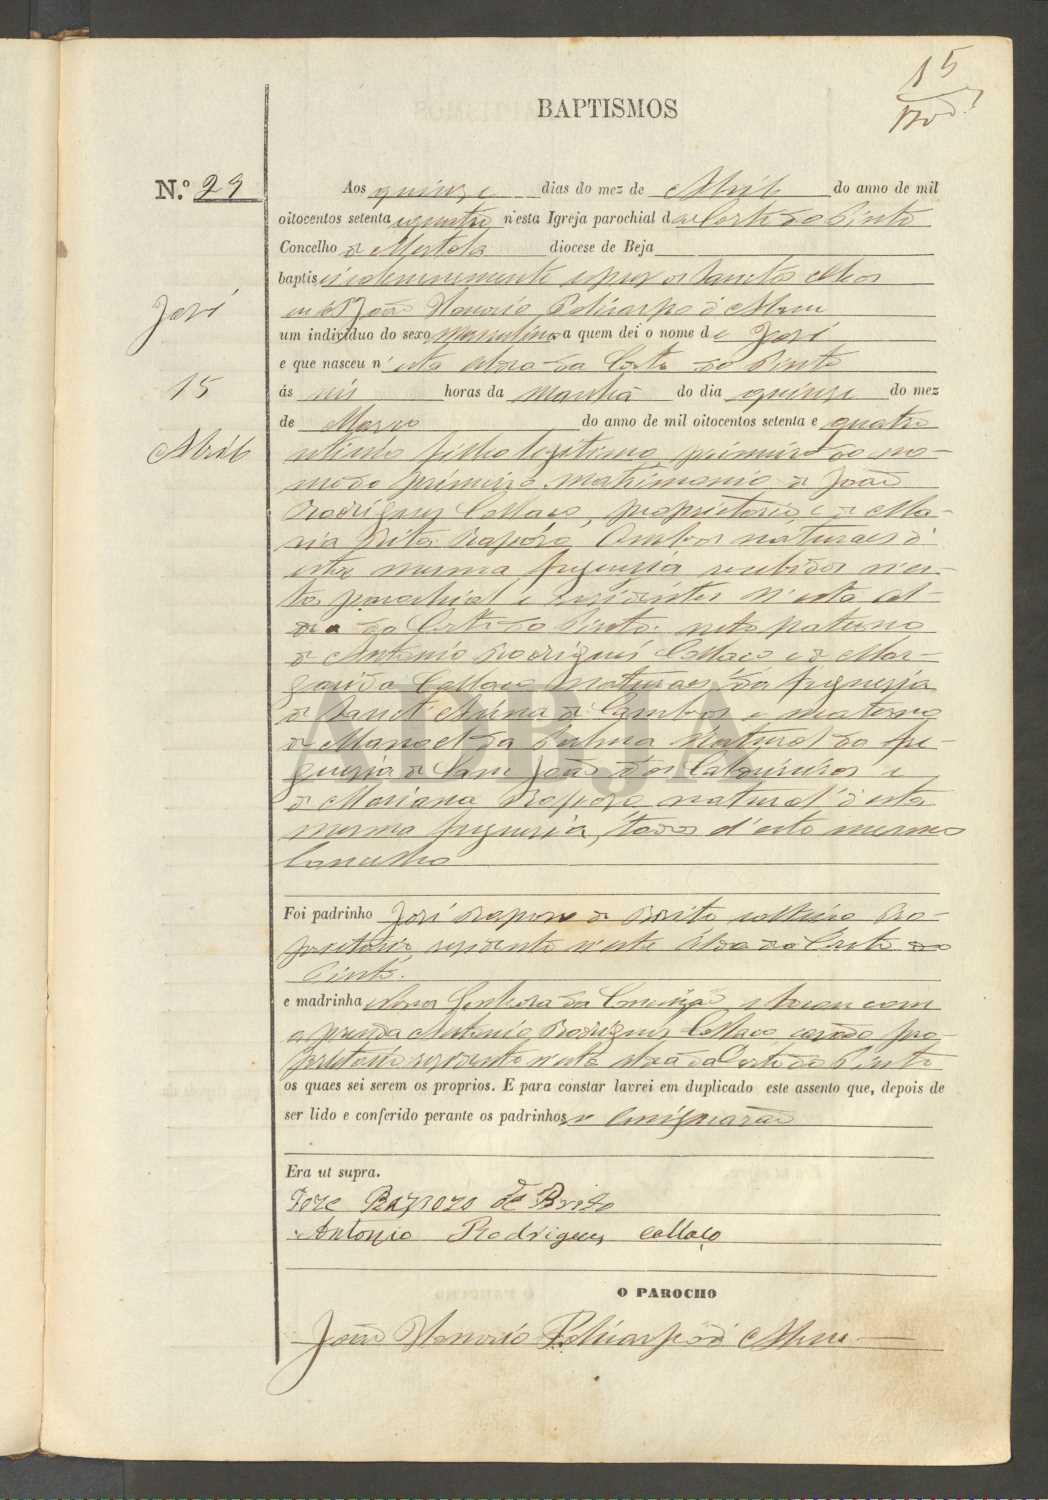 15
BAPTISMOS
N.º 29
Aos quinze dias do mez de Abril do anno de mil
oitocentos setenta e quatro n'esta Igreja parochial da Corte do Pinto
Concelho de Mertola diocese de Beja
baptisei solemnemente e puz os Sanctos Oleos
eu João Honorio Policarpo d'Abreu
José
um individuo do sexo Masculino a quem dei o nome de José
e que nasceu n'esta Aldea da Corte do Pinto
15
ás seis horas da manhã do dia quinze do mez
de Março do anno de mil oitocentos setenta e quatro
Abril
filho legitimo, primeiro do no-
me do primeiro matrimonio de João
Rodrigues Collaço, proprietario, e de Ma-
ria Rita Raposo, Ambos naturaes d'
esta mesma freguesia recebidos n'es-
ta parochial e residentes n'esta Al-
dea da Corte do Pinto: neto paterno
de Antonio Rodrigues Collaço e de Mar-
garida Collaço naturaes da freguesia
de Sanct'Anna de Cambas e materno
de Manoel da Palma natural da fre-
guesia de Sam João dos Caldeireiros e
de Marianna Raposo natural d'esta
mesma freguesia, todos d'este mesmo
Concelho
ADBJA
Foi padrinho José Raposo de Brito solteiro Pro-
prietario, residente n'esta Aldea da Corte do
Pinto.
e madrinha Nossa Senhora da Conceição, e tocou com
a prenda Antonio Rodrigues Collaço casado pro-
prietario residente n'esta Aldea da Corte do Pinto
os quaes sei serem os proprios. E para constar lavrei em duplicado este assento que, depois de
ser lido e conferido perante os padrinhos
Era ut supra.
Joze Rapozo de Brito
Antonio Rodrigues Collaço
O PAROCHO
João Honorio Policarpo d'Abreu